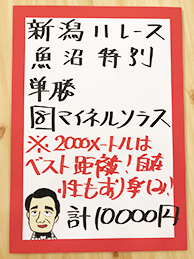 新潟11レース
魚沼特別
単勝
マイネルソラス
※2000メートルは
ベスト距離!自在
性もあり
計10000円